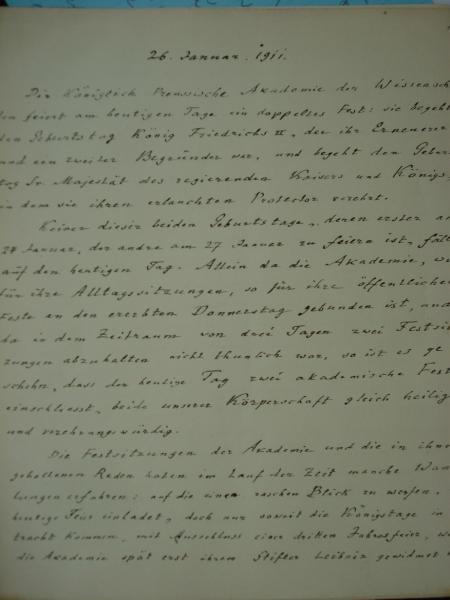 26. Januar. 1911.
Die Königlich Preussische Akademie der Wissensch
ten feiert am heutigen Tage ein doppeltes Fest: sie begeht
den Geburtstag König Friedrichs II, der ihr Erneuerer
und ein zweiter Begründer war, und begeht den Gebur
tag Sr. Majestät des regierenden Kaisers und Königs,
in dem sie ihren erlauchten Protector verehrt.
Keiner dieser beiden Geburtstage, deren erster am
24 Januar, der andre am 27 Januar zu feiern ist, fällt
auf den heutigen Tag. Allein da die Akademie, wie
für ihre Alltagssitzungen, so für ihre öffentlichen
Feste an den ererbten Donnerstag gebunden ist, und
da in dem Zeitraum von drei Tagen zwei Festsit
zungen abzuhalten nicht thunlich war, so ist es ge
schehn, dass der heutige Tag zwei akademische Feste
einschliesst, beide unserer Körperschaft gleich heilig
und verehrungswürdig.
Die Festsitzungen der Akademie und die in ihnen
gehaltenen Reden haben im Lauf der Zeit manche Wand
lungen erfahren: auf die einen raschen Blick zu werfen,
heutige Feier einladet, doch nur soweit die Königstage in
tracht kommen, mit Ausschluss einer dritten Jahresfeier, we
die Akademie spät erst ihrem Stifter Leibniz gewidmet